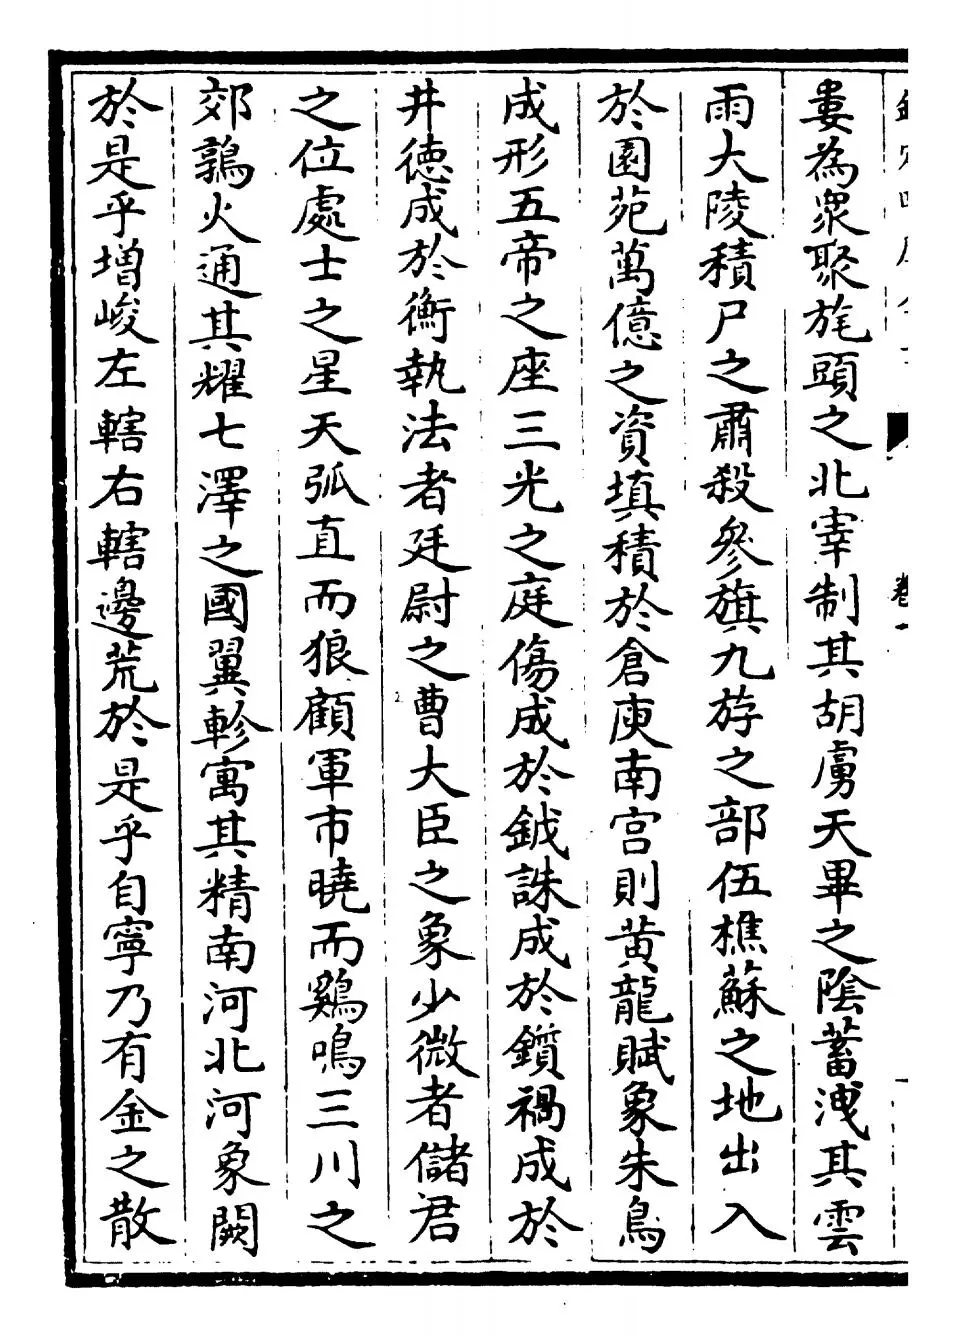 婁為衆聚旄頭之北宰制其胡虜天畢之陰蓄洩其雲
雨大陵積尸之肅殺參旗九斿之部伍樵蘇之地出入
於園苑萬億之資填積於倉庾南宫則黄龍賦象朱鳥
成形五帝之座三光之庭傷成於鉞誅成於鑕禍成於
井徳成於衡執法者廷尉之曹大臣之象少微者儲君
之位處士之星天弧直而狼顧軍市曉而鷄鳴三川之
郊鶉火通其耀七澤之國翼軫寓其精南河北河象闕
於是乎増峻左轄右轄邊荒於是乎自寧乃有金之散